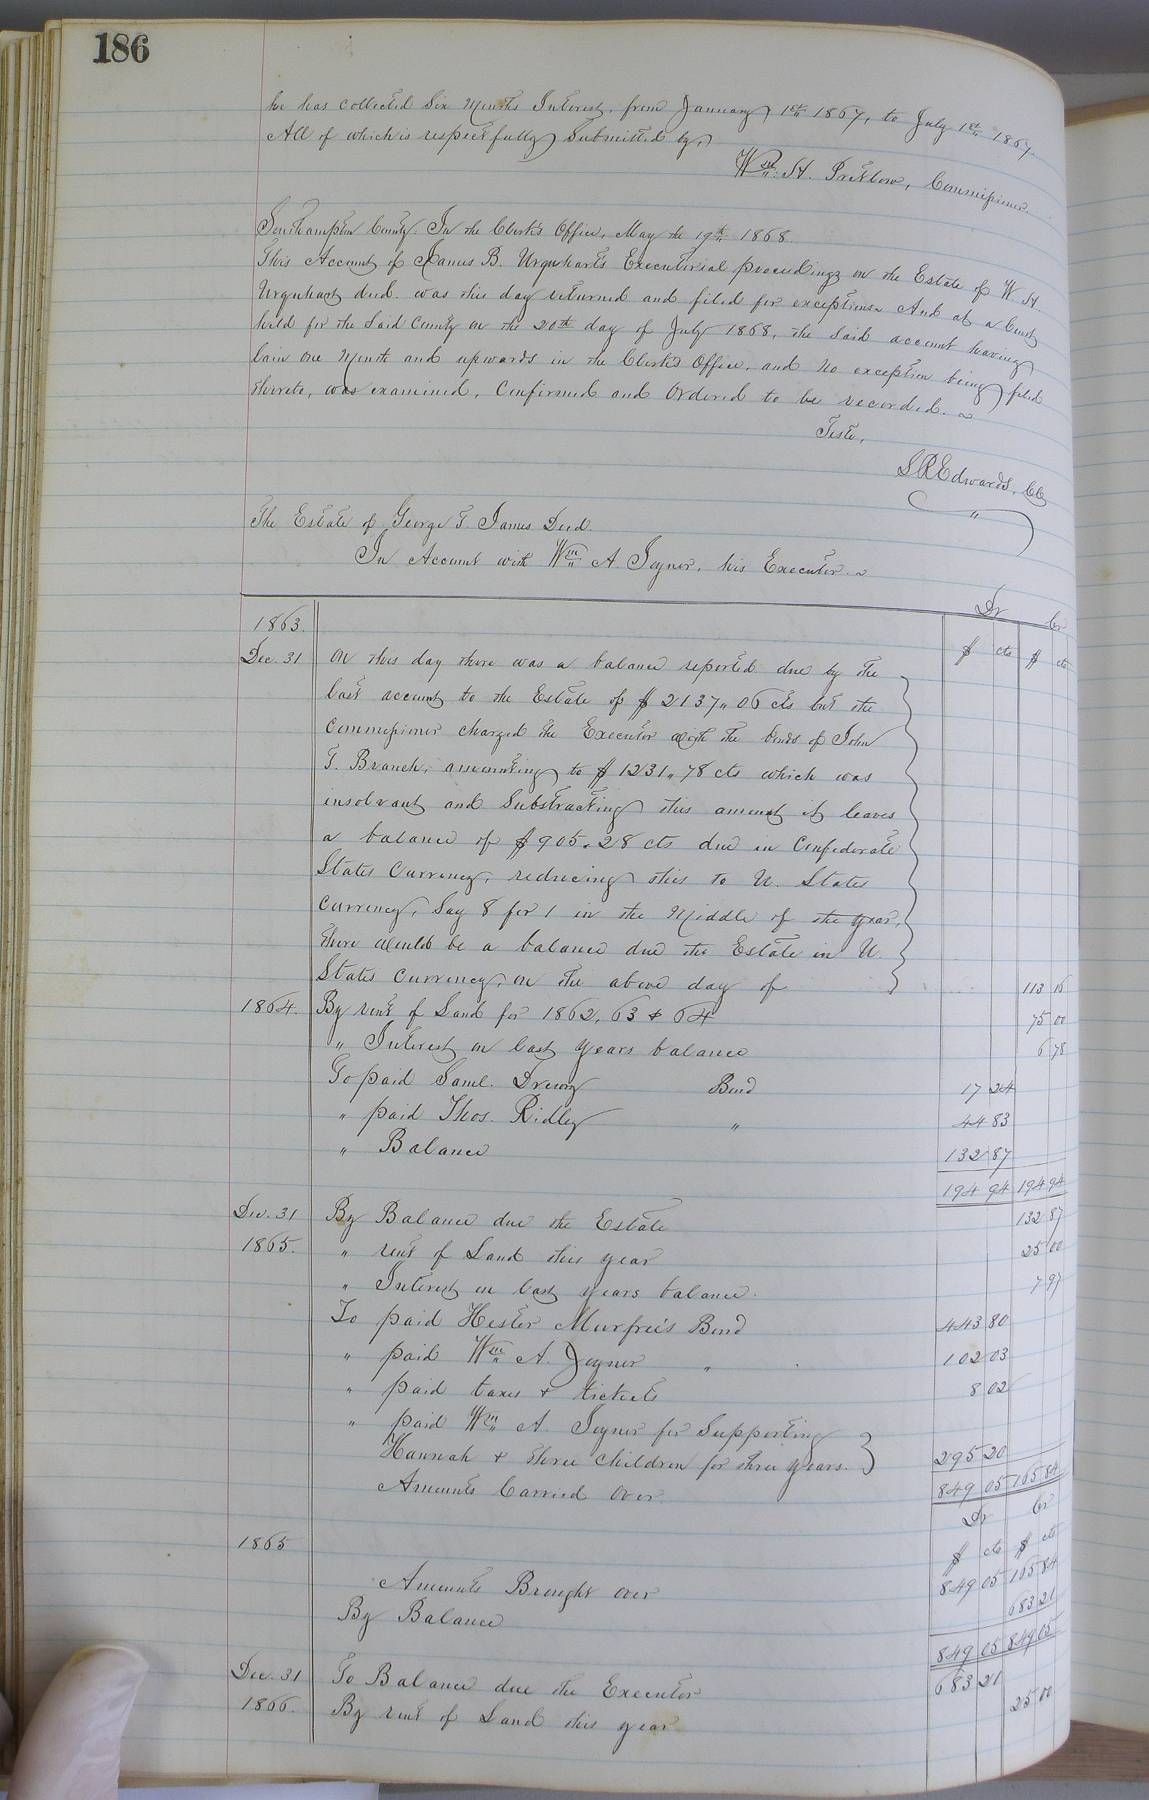 186
he has collected Six Months Interest, from January 1st 1867, to July 1st 1867
All of which is respectfully Submitted by,
Wm. H. Pretlow, Commissioner.
Southampton County. In the Clerk's Office, May the 19th 1868.
This Account of James B. Urquhart's Executorial proceedings on the Estate of W. H.
Urquhart decd. was this day returned and filed for exceptions. And at a Court
held for the Said County on the 20th day of July 1868, the said account having
lain one Month and upwards in the Clerk's Office, and no exception being filed
thereto, was examined, Confirmed and Ordered to be recorded.
Teste,
S R Edwards, CC
The Estate of George T. James Decd.
In Account with Wm A. Joyner, his Executor.
Dr Cr
1863. $ cts $ cts
Dec. 31 On this day there was a balance reported due by the
last account to the Estate of $2137.06 cts but the
Commissioner charged the Executor with the bonds of John
T. Branch, amounting to $1231.78 cts which was
insolvant and Substracting this amount it leaves
a balance of $905.28 cts due in Confederate
States Currency, reducing this to U. States
Currency, Say 8 for 1 in the Middle of the year,
there would be a balance due the Estate in U.
States Currency, on the above day of 113 16
1864. By rent of Land for 1862, 63 & 64 75 00
" Interest on last years balance 6 78
To paid Saml. Drewry Bond 17 24
" paid Thos. Ridley " 44 83
" Balance 132 87
194 94 194 94
Dec. 31 By Balance due the Estate 132 87
1865. " rent of Land this year 25 00
" Interest on last years balance. 7 97
To paid Hester Murfree's Bond 443 80
" paid Wm A. Joyner " 102 03
" paid taxes & tickets 8 02
" paid Wm A. Joyner for Supporting
Hannah & three Children for three years. 295 20
Amounts Carried Over. 849 05 165 84
Dr Cr
1865 $ cts $ cts
Amounts Brought over 849 05 165 84
By Balance 683 21
849 05 849 05
Dec. 31 To Balance due the Executor 683 21
1866. By rent of Land this year 25 00